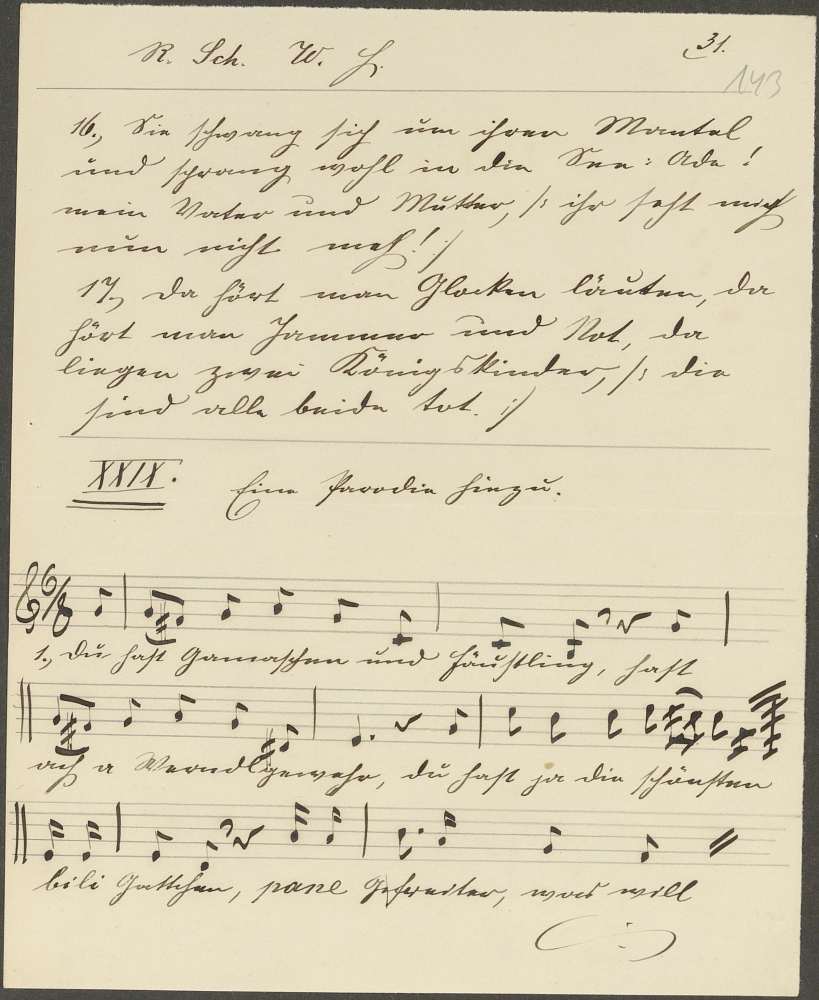 R. Sch. W. H.
31.
143
16., Sie schwang sich um ihren Mantel
und sprang wohl in die See: Ade!
mein Vater und Mutter, /: ihr seht mich
nun nicht meh! :/
17., Da hört man Glocken läuten, da
hört man Jammer und Not, da
liegen zwei Königskinder, /: die
sind alle beide tot. :/
XXIX. Eine Parodie hiezu.
6/8
1., Du hast Gamaschen und Fäustling, hast
ach a Werndlgewehr, du hast ja die schönsten
bili Gattchen, pane Gefreiter, was will